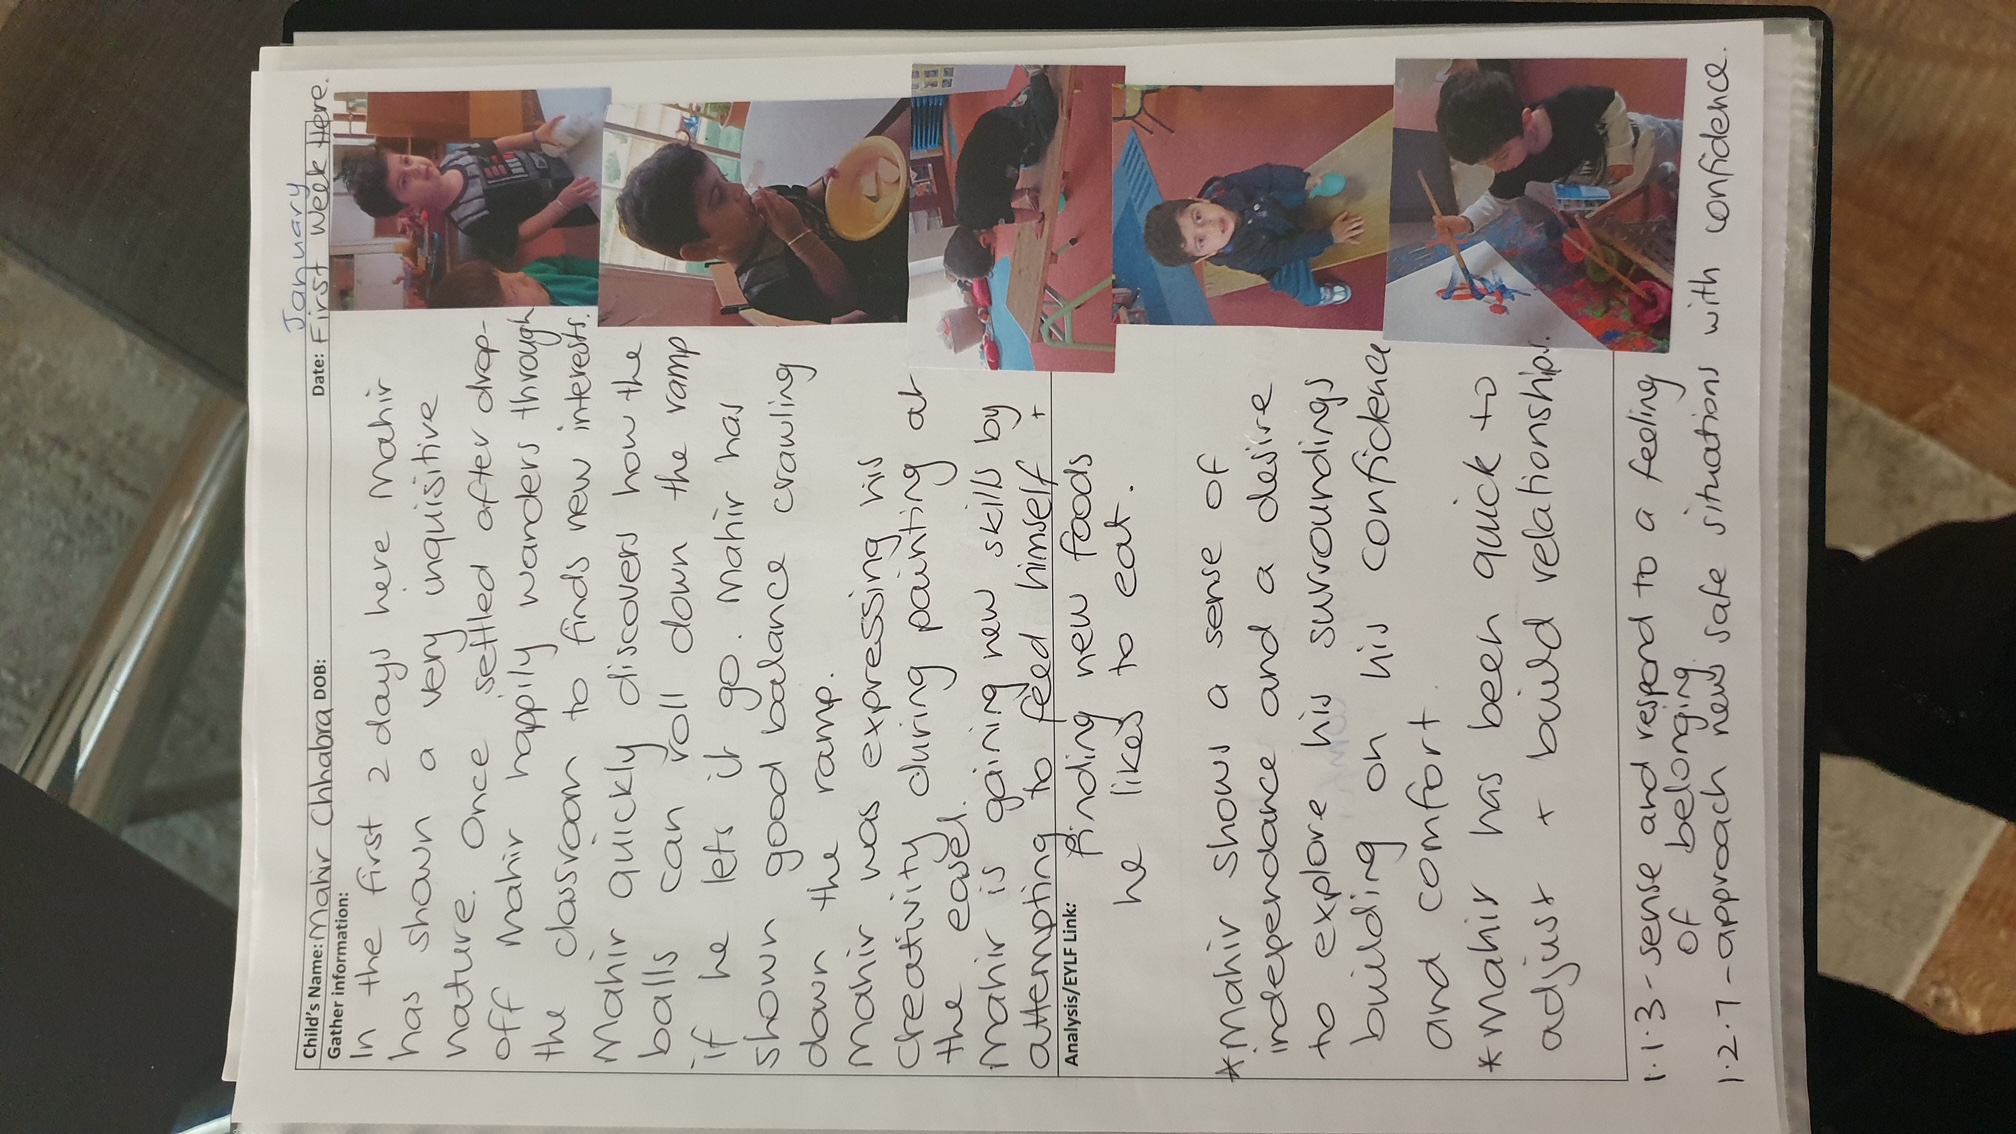 January
Child's Name: Mahir Chhabra DOB: Date: First Week Here.
Gather information:
In the first 2 days here Mahir
has shown a very inquisitive
nature. Once settled after drop-
off Mahir happily wanders through
the classroom to finds new interests.
Mahir quickly discovers how the
balls can roll down the ramp
if he lets it go. Mahir has
shown good balance crawling
down the ramp.
Mahir was expressing his
creativity during painting at
the easel.
Mahir is gaining new skills by
attempting to feed himself +
Analysis/EYLF Link: finding new foods
he likes to eat.
*Mahir shows a sense of
independance and a desire
to explore his surroundings
building on his confidence
and comfort.
*Mahir has been quick to
adjust + build relationships.
1.1.3 - sense and respond to a feeling
of belonging
1.2.7 - approach new safe situations with confidence.